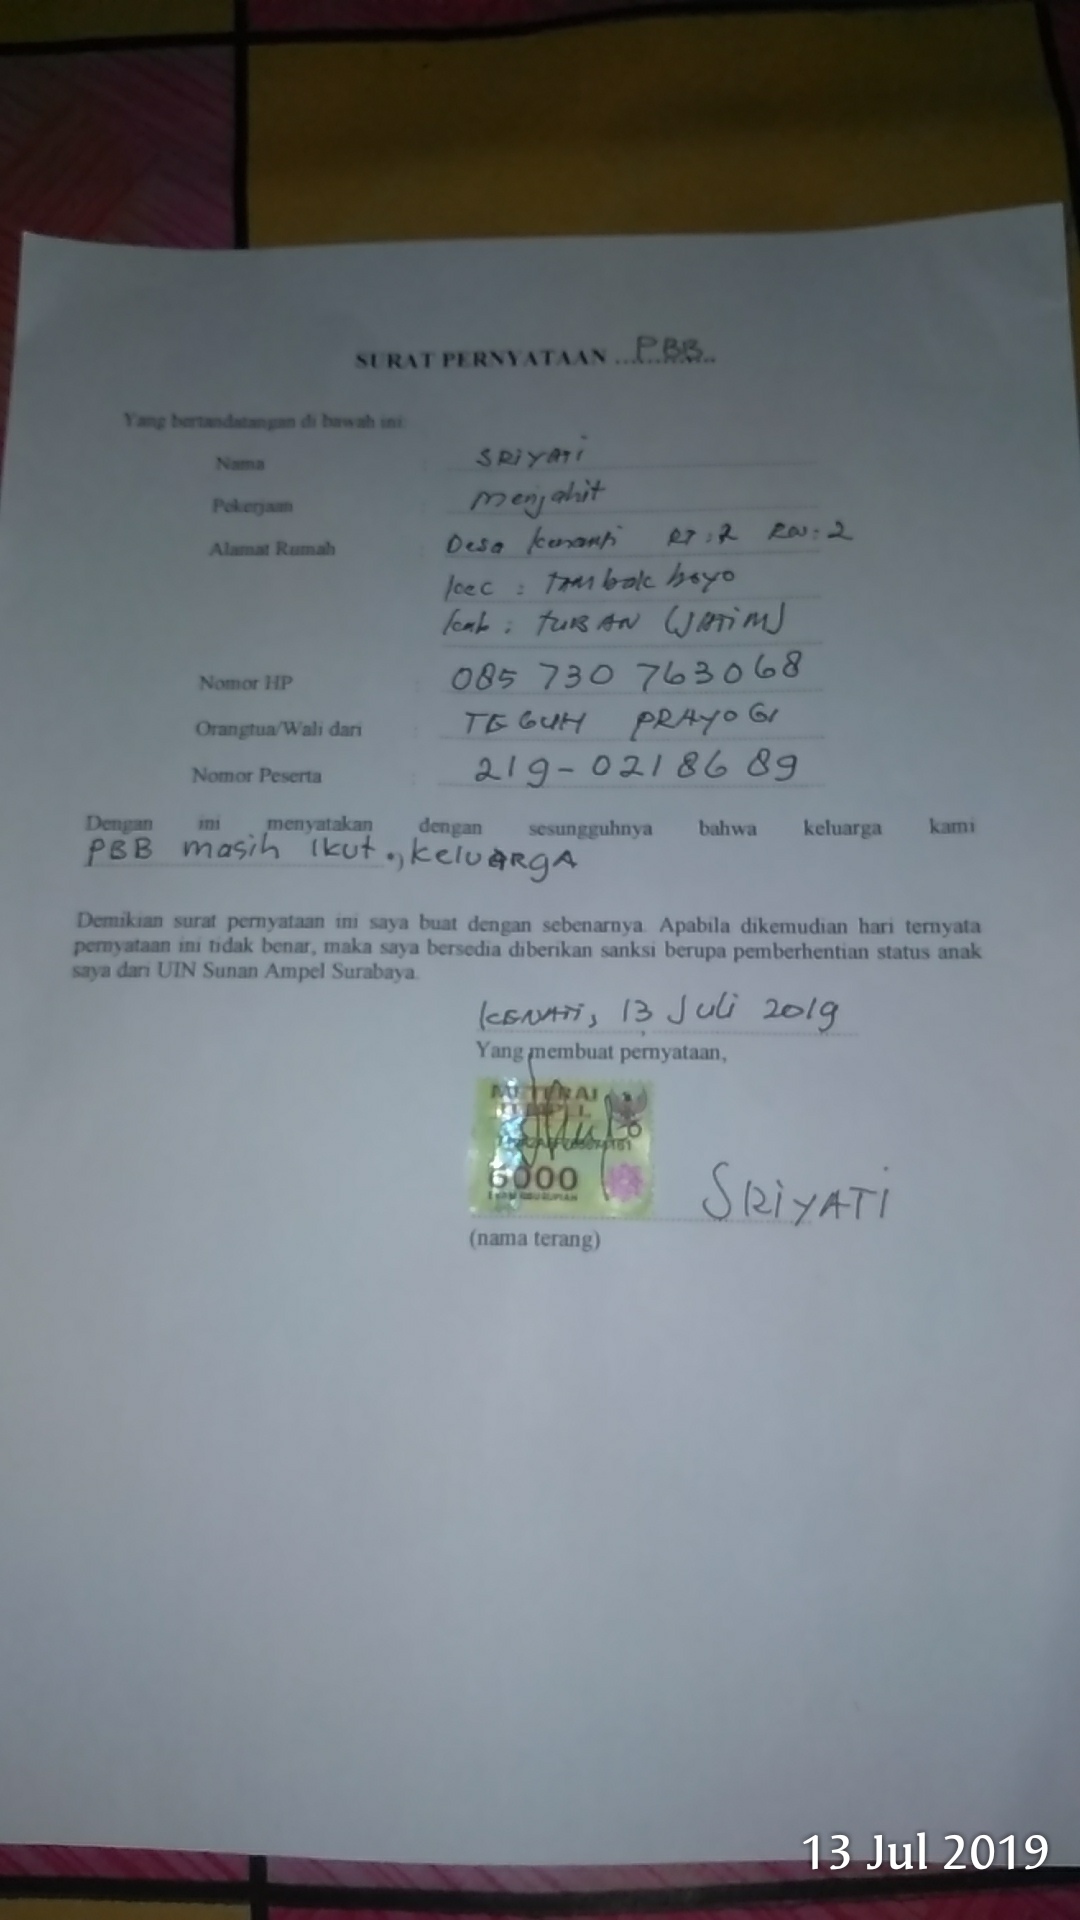 SURAT PERNYATAAN ...PBB...
Yang bertandatangan di bawah ini:
Nama : SRIYATI
Pekerjaan : Menjahit
Alamat Rumah : Desa Kenanti RT:2 RW:2
kec : TAMbak boyo
kab : TUBAN (JATIM)
Nomor HP : 085 730 763068
Orangtua/Wali dari : TEGUH PRAYOGI
Nomor Peserta : 219-0218689
Dengan ini menyatakan dengan sesungguhnya bahwa keluarga kami
PBB masih Ikut., KeluARgA
Demikian surat pernyataan ini saya buat dengan sebenarnya. Apabila dikemudian hari ternyata
pernyataan ini tidak benar, maka saya bersedia diberikan sanksi berupa pemberhentian status anak
saya dari UIN Sunan Ampel Surabaya.
KENATI, 13 Juli 2019
Yang membuat pernyataan,
METERAI
TEMPEL
6000
ENAM RIBU RUPIAH
SRIYATI
(nama terang)
13 Jul 2019